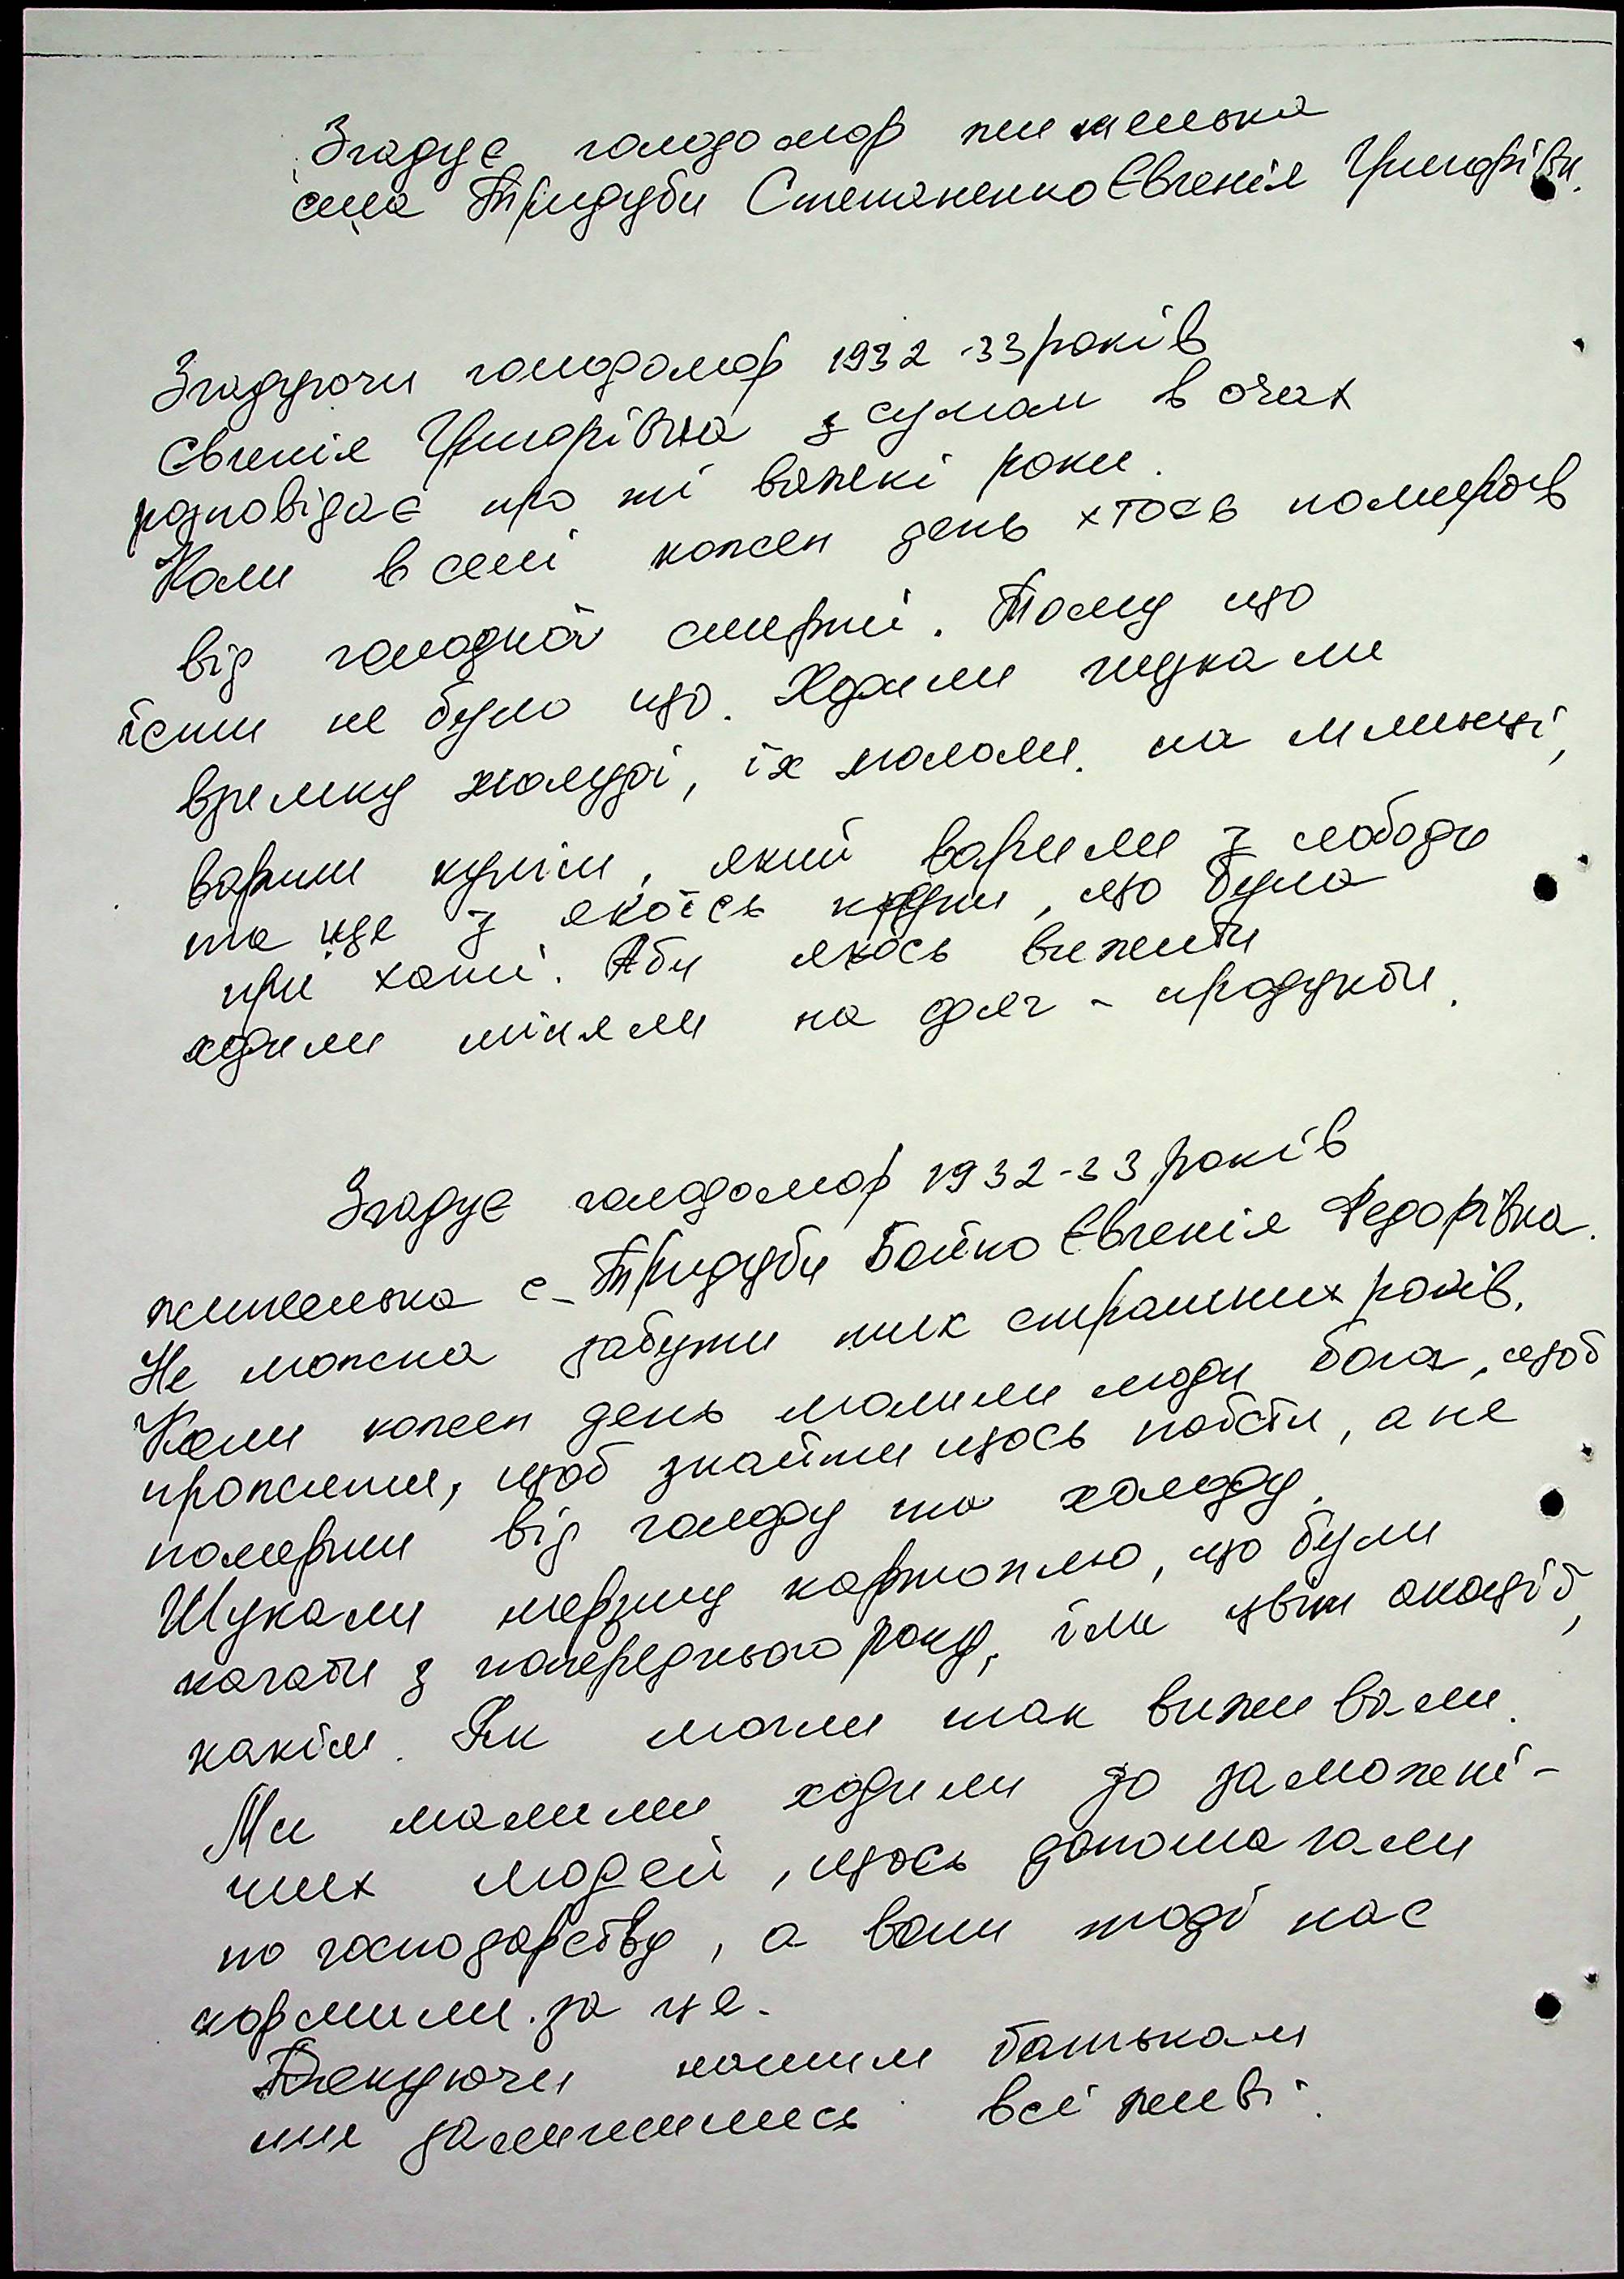 Згадує голодомор жителька
села Тридуби Степаненко Євгенія Григорівн.
Згадуючи голодомор 1932-33 років
Євгенія Григорівна з сумом в очах
розповідає про ті важкі роки.
Коли в селі кожен день хтось помирав
від голодної смерті. Тому що
їсти не було що. Ходили шукали
взимку жолуді, їх мололи на млинці,
варили куліш, який варили з лободи
та ще з якоїсь крупи, що була
при хаті. Аби якось вижити
ходили міняли на одяг - продукти.
Згадує голодомор 1932-33 років
жителька с. Тридуби Бойко Євгенія Федорівна.
Не можна забути тих страшних років.
Коли кожен день молили люди бога, щоб
прожити, щоб знайти щось поїсти, а не
померти від голоду та холоду.
Шукали мерзлу картоплю, що були
качати з попереднього року, їли цвіт акації,
калачики. Як могли так виживали.
Ми малими ходили до заможні-
ших людей, щось допомагали
по господарству, а вони тоді нас
кормили за це.
Дякуючи нашим батькам
ми залишились всі живі.